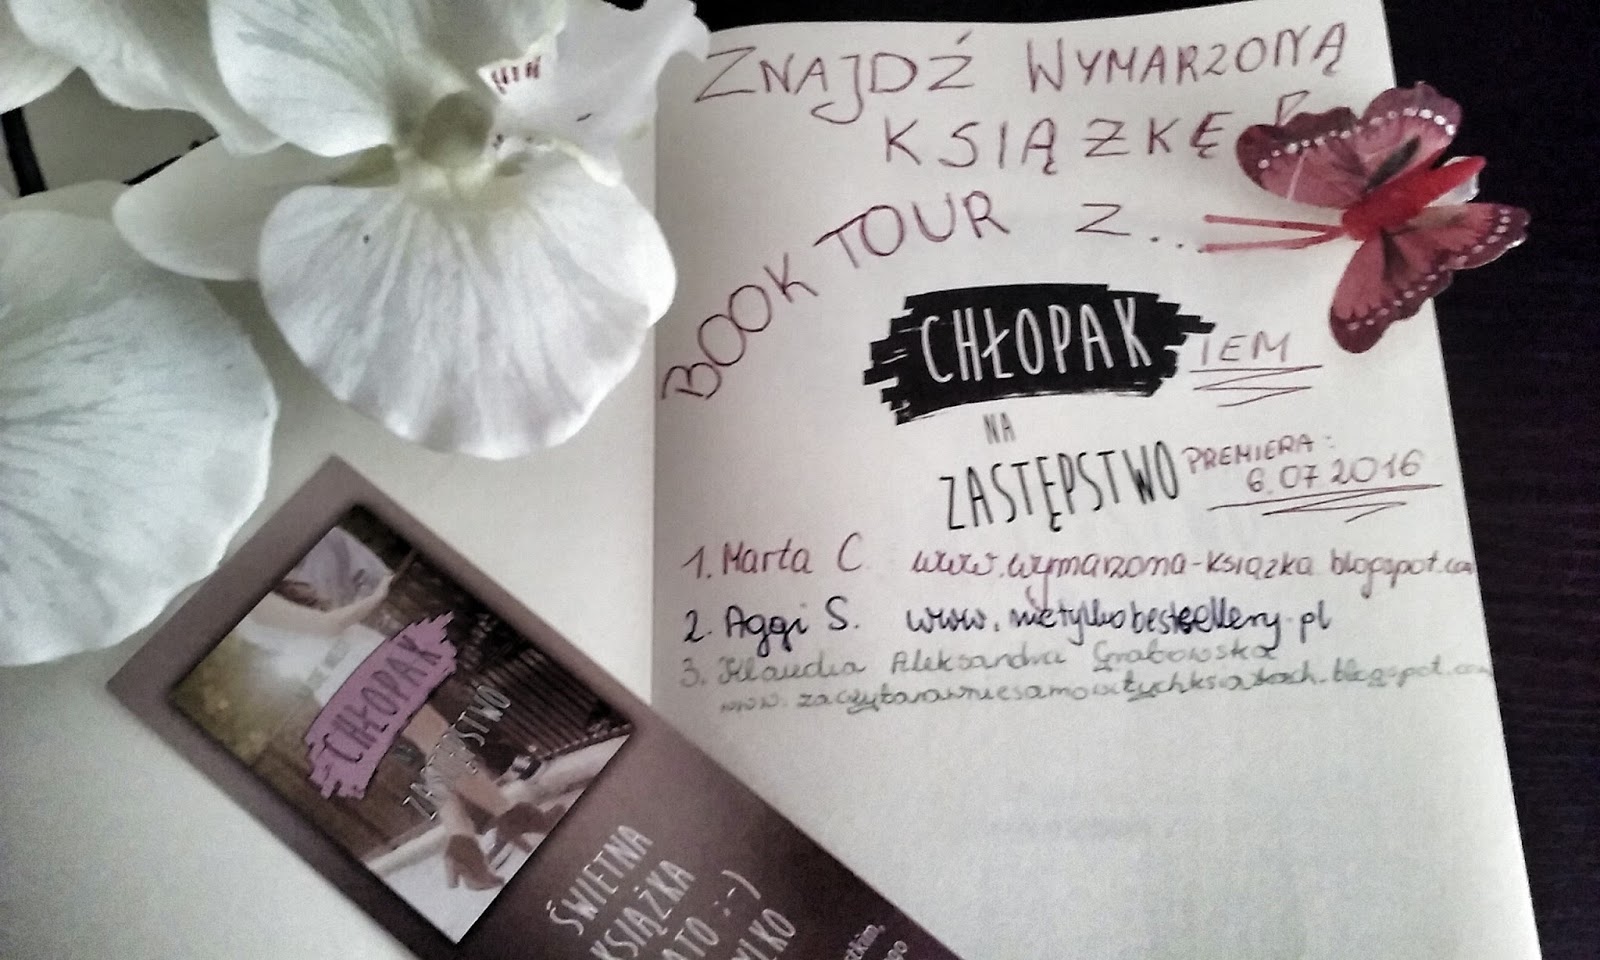 ZNAJDŹ WYMARZONĄ
KSIĄŻKĘ
BOOK TOUR Z...
CHŁOPAKIEM
NA
ZASTĘPSTWO
PREMIERA:
6.07.2016
1. Marta C. www.wymarzona-ksiazka.blogspot.com
2. Aggi S. www.nietylkobestsellery.pl
3. Klaudia Aleksandra Grabowska
www.zaczytanawniesamowitychksiazkach.blogspot.com
CHŁOPAK
NA
ZASTĘPSTWO
ŚWIETNA
KSIĄŻKA
ATO :-)
YLKO